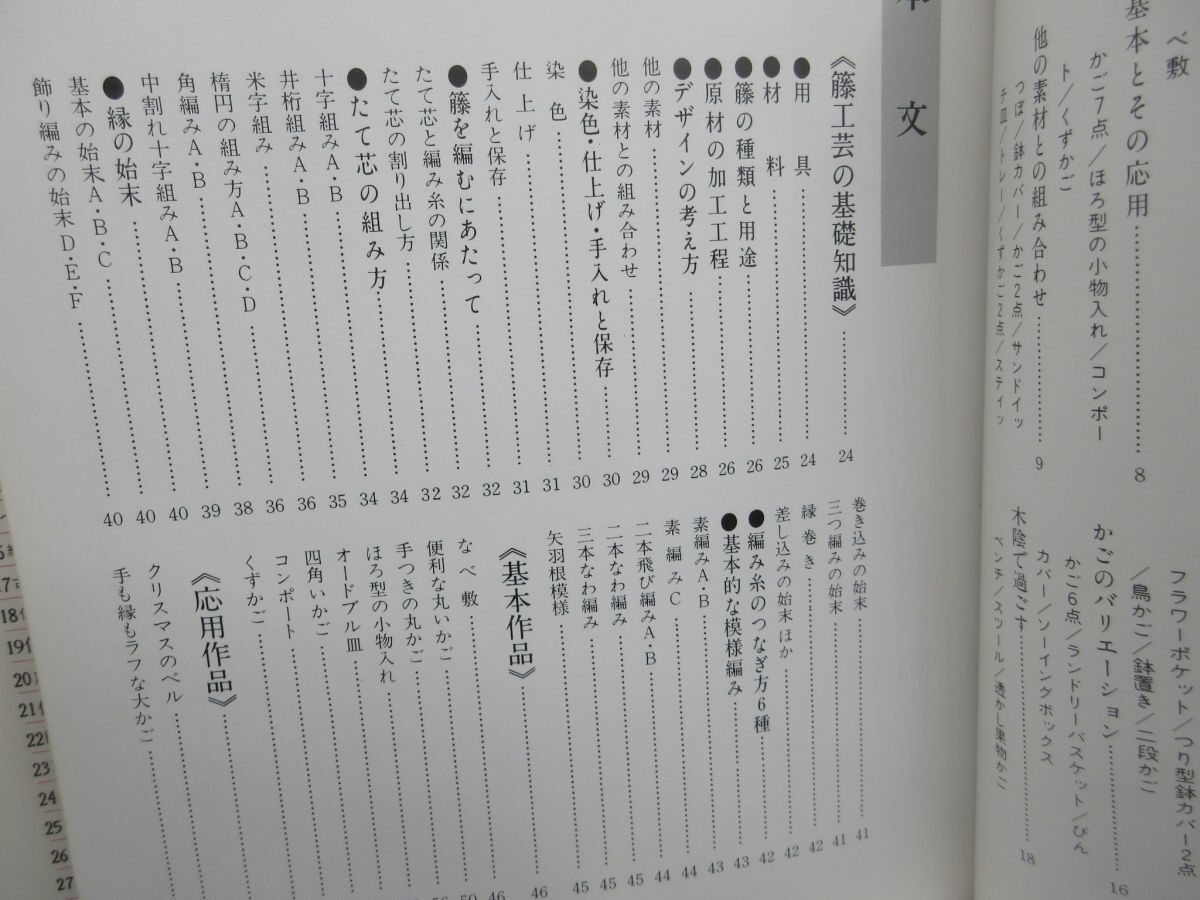 べ敷
基本とその応用……………………8
かご7点/ほろ型の小物入れ/コンポー
ト/くずかご
他の素材との組み合わせ……………9
つぼ/鉢カバー/かご2点/サンドイッ
チ皿/トレー/くずかご2点/スティッ
フラワーポケット/つり型鉢カバー2点
/鳥かご/鉢置き/二段かご
かごのバリエーション……………16
かご6点/ランドリーバスケット/びん
カバー/ソーイングボックス
木陰で過ごす……………18
ベンチ/スツール/透かし果物かご
本文
《籐工芸の基礎知識》……………24
●用具……………24
●材料……………25
●籐の種類と用途……………26
●原材の加工工程……………26
●デザインの考え方……………28
他の素材……………29
他の素材との組み合わせ……………29
●染色・仕上げ・手入れと保存……………30
染色……………30
仕上げ……………31
手入れと保存……………31
●籐を編むにあたって……………32
たて芯と編み糸の関係……………32
たて芯の割り出し方……………32
●たて芯の組み方……………34
十字組みA・B……………34
井桁組みA・B……………35
米字組み……………36
楕円の組み方A・B・C・D……………36
角編みA・B……………38
中割れ十字組みA・B……………39
●縁の始末……………40
基本の始末A・B・C……………40
飾り編みの始末D・E・F……………40
巻き込みの始末……………41
三つ編みの始末……………41
縁巻き……………42
差し込みの始末 ほか……………42
●編み糸のつなぎ方6種……………42
●基本的な模様編み……………43
素編みA・B……………43
素編みC……………44
二本飛び編みA・B……………44
二本なわ編み……………45
三本なわ編み……………45
矢羽根模様……………45
《基本作品》……………46
なべ敷……………46
便利な丸いかご……………50
手つきの丸かご
ほろ型の小物入れ
オードブル皿
四角いかご
コンポート
くずかご
《応用作品》
クリスマスのベル
手も縁もラフな大かご
17
18
19
20
21
22
23
24
25
26
27